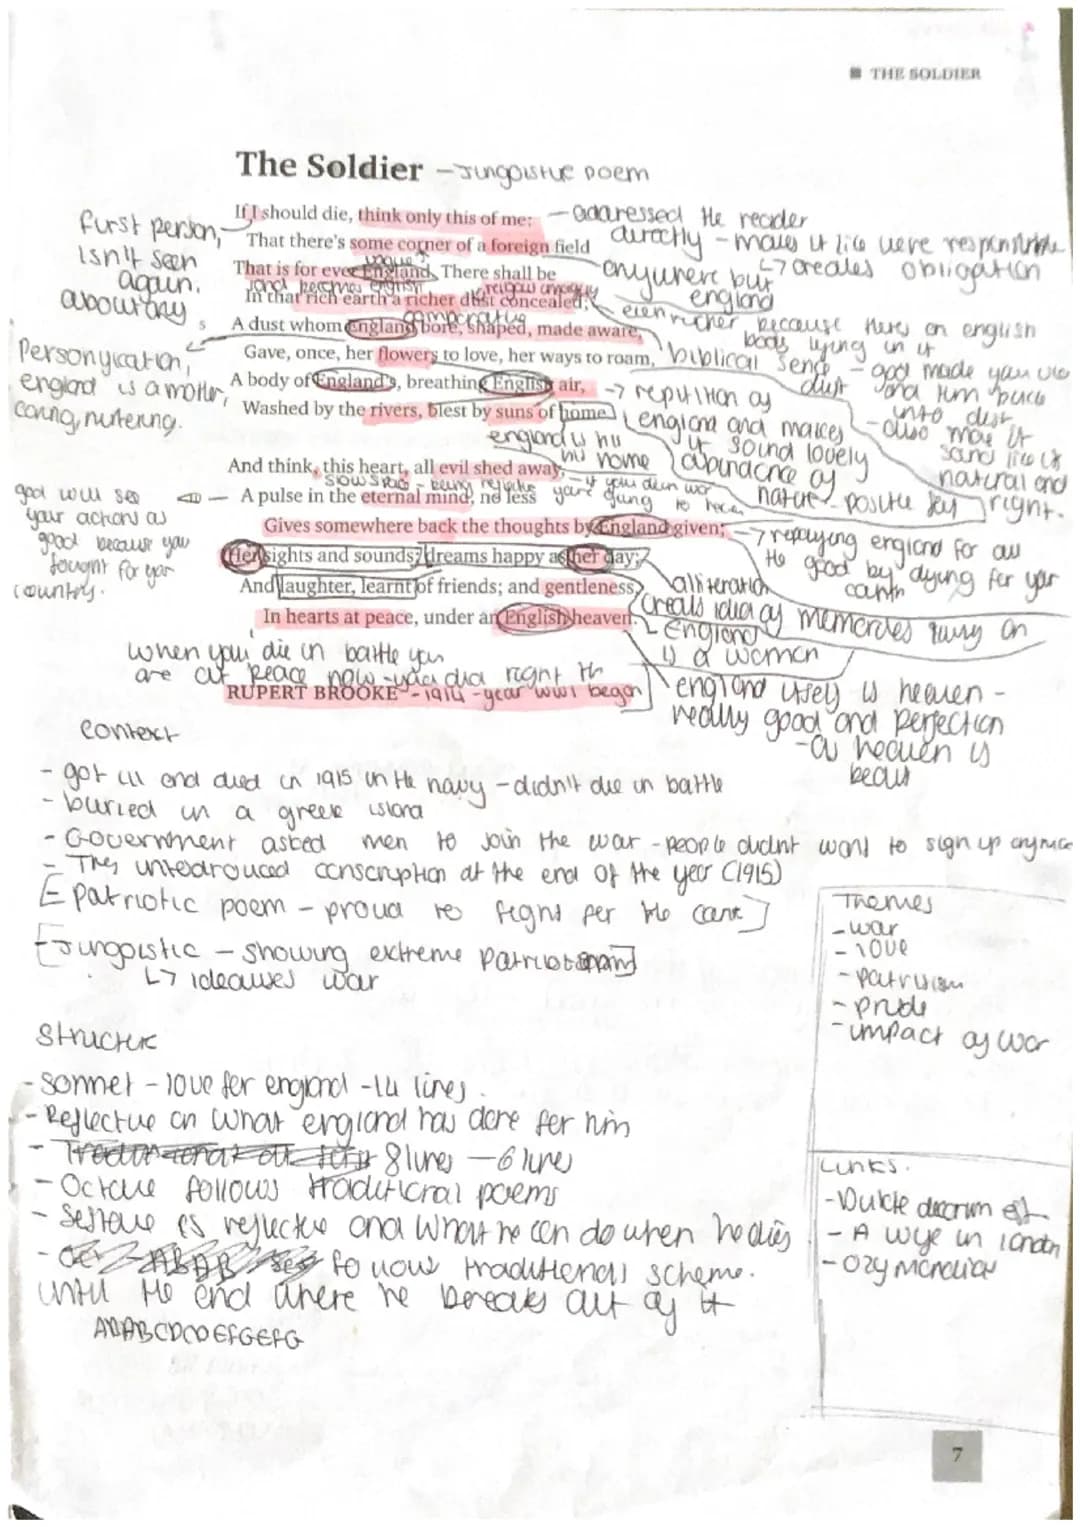 THE SOLDIER
The Soldier - Jingoistic poem
If I should die, think only this of me:
That there's some corner of a foreign field
That is for ever England. There shall be
In that rich earth a richer dust concealed;
A dust whom England bore, shaped, made aware,
Gave, once, her flowers to love, her ways to roam,
A body of England's, breathing English air,
Washed by the rivers, blest by suns of home.
And think, this heart, all evil shed away,
A pulse in the eternal mind, no less
Gives somewhere back the thoughts by England given;
Her sights and sounds; dreams happy as her day;
And laughter, learnt of friends; and gentleness,
In hearts at peace, under an English heaven.
RUPERT BROOKE - 1914 - year WW1 began
first person,
isn't seen
again.
Personification,
england is a mother,
caring, nutering.
god will see
your actions as
good because you
fought for your
country.
- addressed the reader
directly - makes it like were responsible
↳ creates obligation
anywhere but
england
vague
comparative
even richer because theres an english
body lying in it
biblical sence - god made you
dust
and turn back
into dust
- also make it
natural and
right.
→ repitition of
england and makes
it sound lovely
abundance of
nature - positive
england is his
home
→ repaying england for all
the good by dying for your
alliteration
creats idea of memories living on
England
is a women
when you die in battle you
are at peace now - you died right
england itself is heaven -
really good and perfection
- as heaven is
context
- got ill and died in 1915 in the navy - didn't die in battle
- buried in a greek island
- Government asked men to join the war - people didnt want to sign up anymore
- They conscription at the end of the year (1915)
[- patriotic poem - proud to fight for the]
[- Jingoistic - showing extreme]
↳ idealises war
Structure
- sonnet - love for england - 14 lines.
- Reflective on what england has done for him
- 8 lines - 6 lines
- Octave follows traditional poems
- is reflective and what he can do when he dies
- follows traditional scheme.
until the end where he breaks out of it
Themes
- war
- love
- patriotism
- pride
- impact of war
Links.
- Dulce decorum est
- A wife in london
7